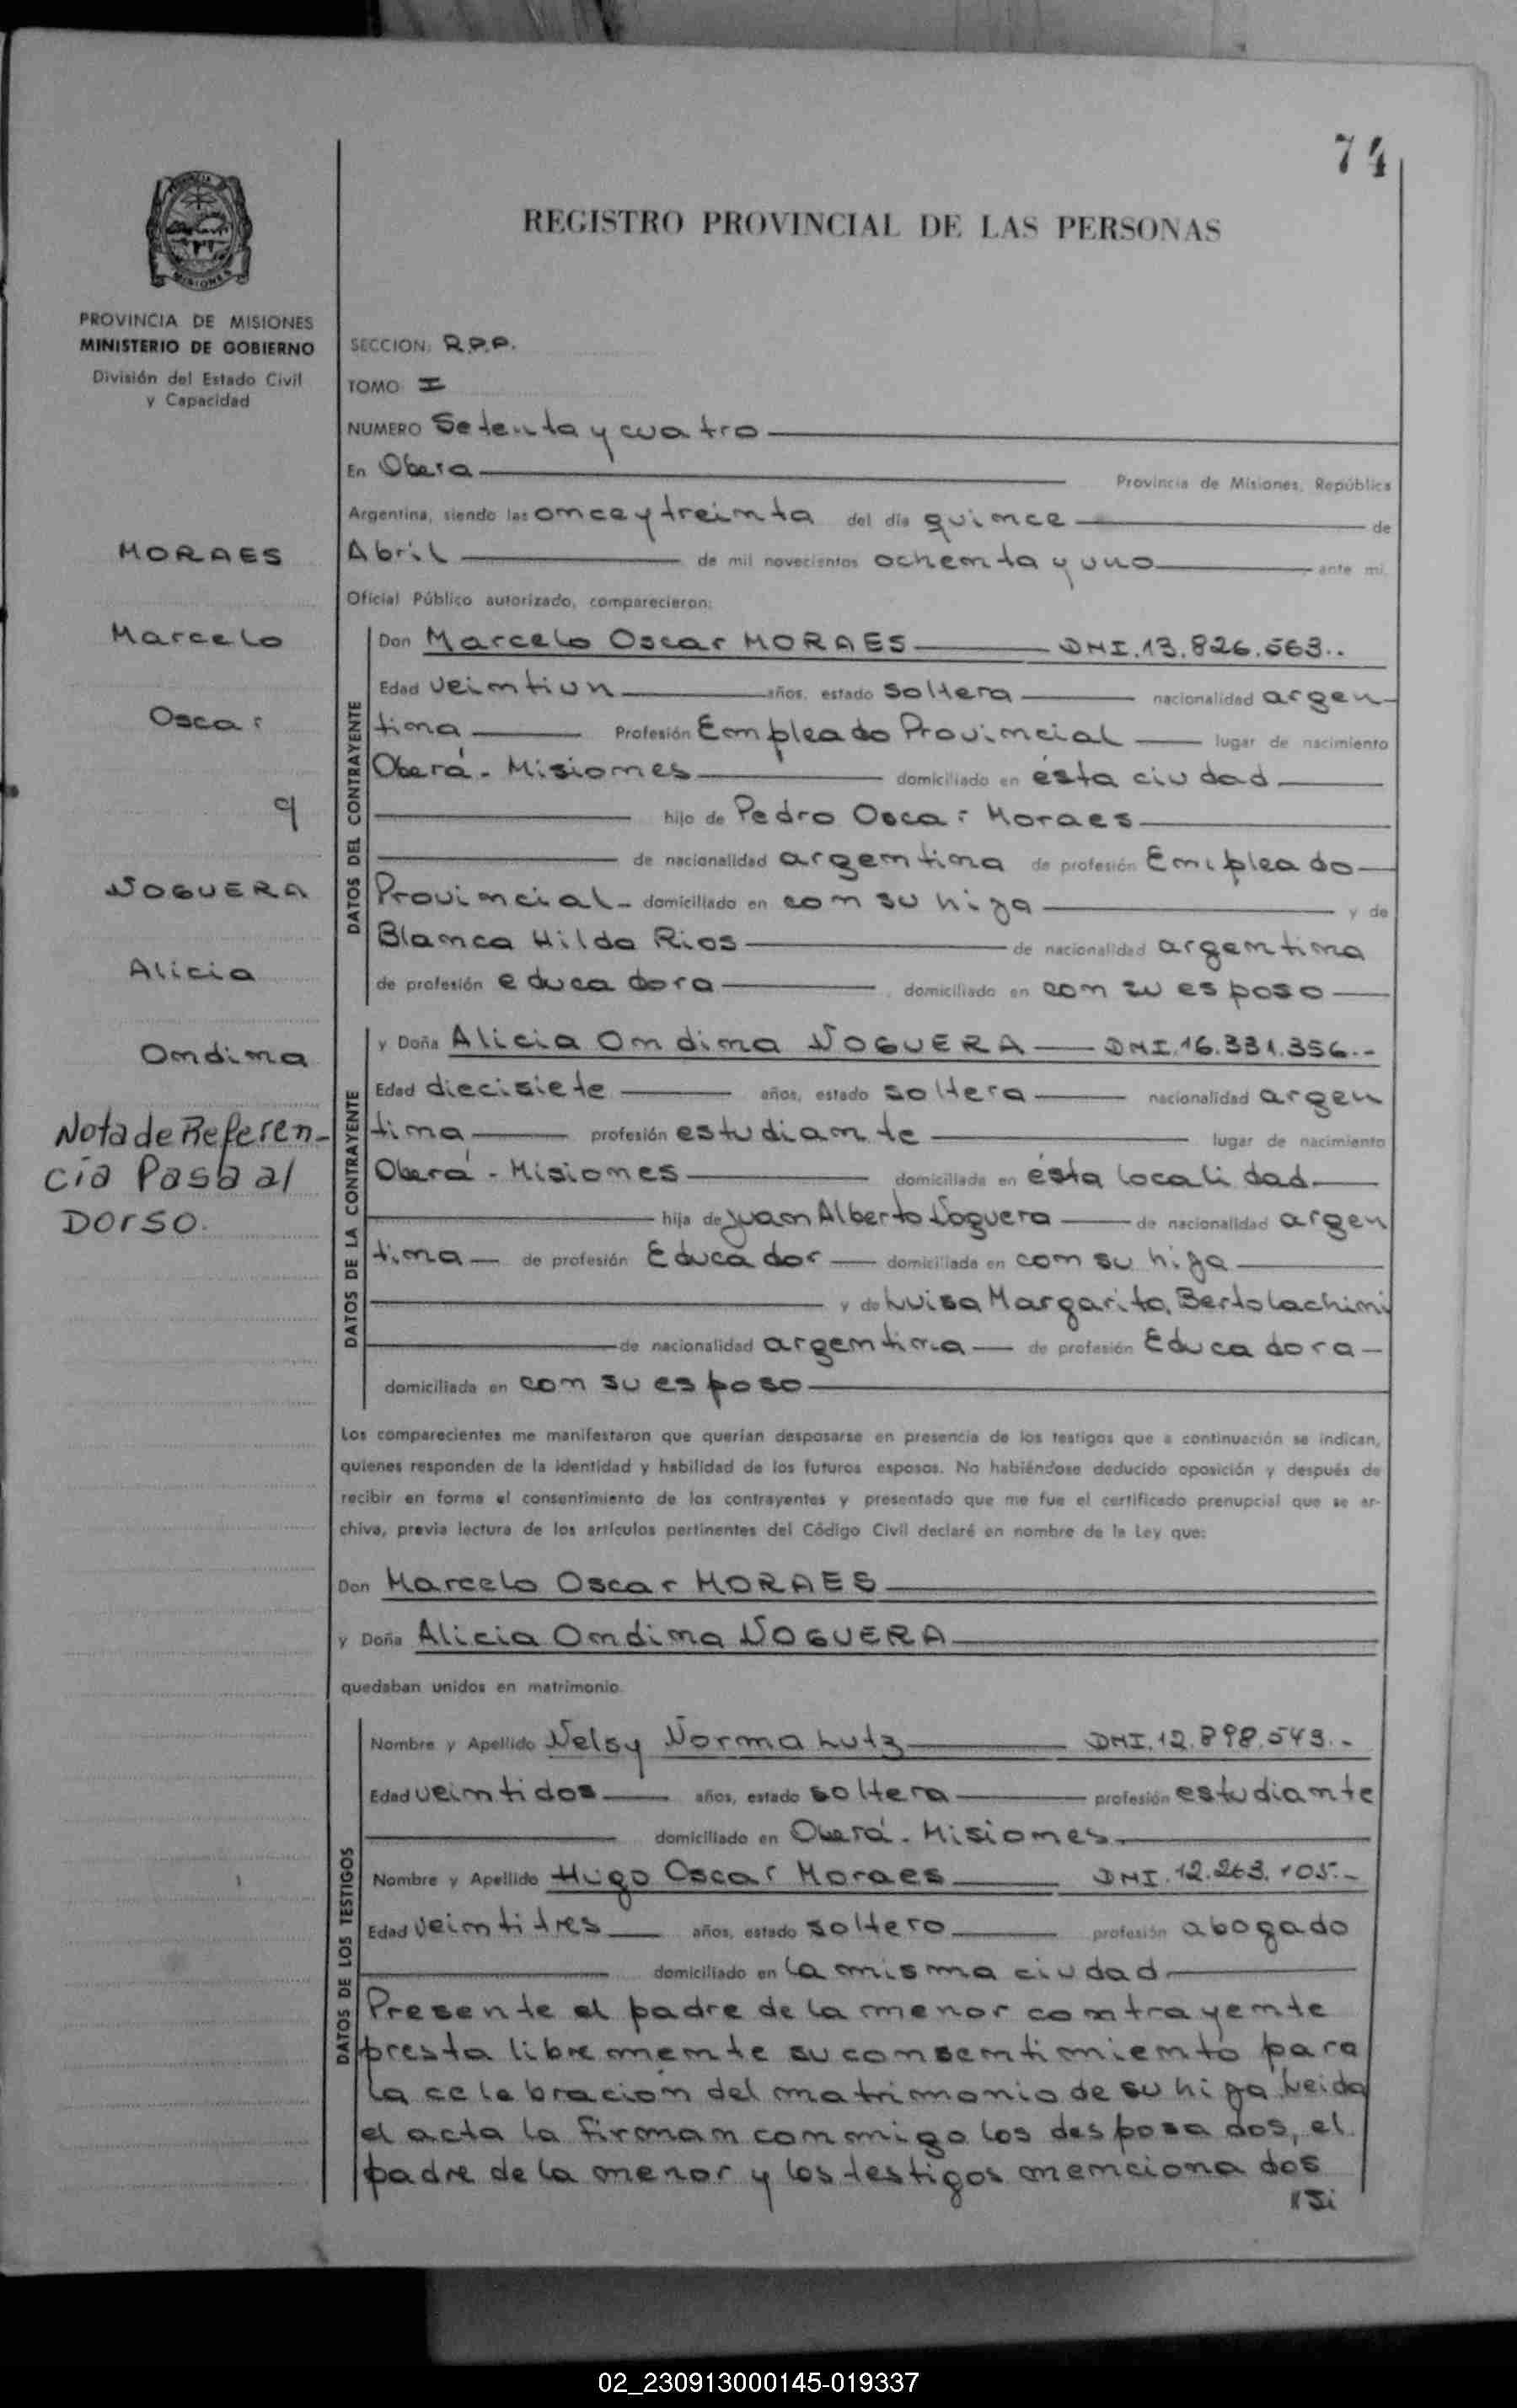 74
REGISTRO PROVINCIAL DE LAS PERSONAS
MISIONES
PROVINCIA DE MISIONES
MINISTERIO DE GOBIERNO
División del Estado Civil
y Capacidad
SECCION: R.P.P.
TOMO I
NUMERO Setenta y cuatro
En Obera Provincia de Misiones, República
Argentina, siendo las once y treinta del día quince de
Abril de mil novecientos ochenta y uno ante mí,
Oficial Público autorizado, comparecieron:
MORAES
Marcelo
Oscar
y
NOGUERA
Alicia
Ondina
Nota de Referen-
cia Pasa al
Dorso.
DATOS DEL CONTRAYENTE
Don Marcelo Oscar MORAES DNI.13.826.563..
Edad veintiun años, estado soltera nacionalidad argen-
tina Profesión Empleado Provincial lugar de nacimiento
Oberá - Misiones domiciliado en ésta ciudad
hijo de Pedro Oscar Moraes
de nacionalidad argentina de profesión Empleado
Provincial - domiciliado en con su hija y de
Blanca Hilda Rios de nacionalidad argentina
de profesión educadora domiciliado en con su esposo
DATOS DE LA CONTRAYENTE
y Doña Alicia Ondina NOGUERA DNI.16.331.356.-
Edad diecisiete años, estado soltera nacionalidad argen
tina profesión estudiante lugar de nacimiento
Oberá - Misiones domiciliada en ésta localidad
hija de Juan Alberto Noguera de nacionalidad argen
tina de profesión Educador domiciliada en con su hija
y de Luisa Margarita Bertolachini
de nacionalidad argentina de profesión Educadora
domiciliada en con su esposo
Los comparecientes me manifestaron que querían desposarse en presencia de los testigos que a continuación se indican,
quienes responden de la identidad y habilidad de los futuros esposos. No habiéndose deducido oposición y después de
recibir en forma el consentimiento de los contrayentes y presentado que me fue el certificado prenupcial que se ar-
chiva, previa lectura de los artículos pertinentes del Código Civil declaré en nombre de la Ley que:
Don Marcelo Oscar MORAES
y Doña Alicia Ondina NOGUERA
quedaban unidos en matrimonio
DATOS DE LOS TESTIGOS
Nombre y Apellido Nelsy Norma Lutz DNI.12.898.549.-
Edad veintidos años, estado soltera profesión estudiante
domiciliado en Oberá - Misiones
Nombre y Apellido Hugo Oscar Moraes DNI.12.263.105.-
Edad veintitres años, estado soltero profesión abogado
domiciliado en la misma ciudad
Presente el padre de la menor contrayente
presta libremente su consentimiento para
la celebración del matrimonio de su hija. Leida
el acta la firman conmigo los desposados, el
padre de la menor y los testigos mencionados
//Si
02_230913000145-019337